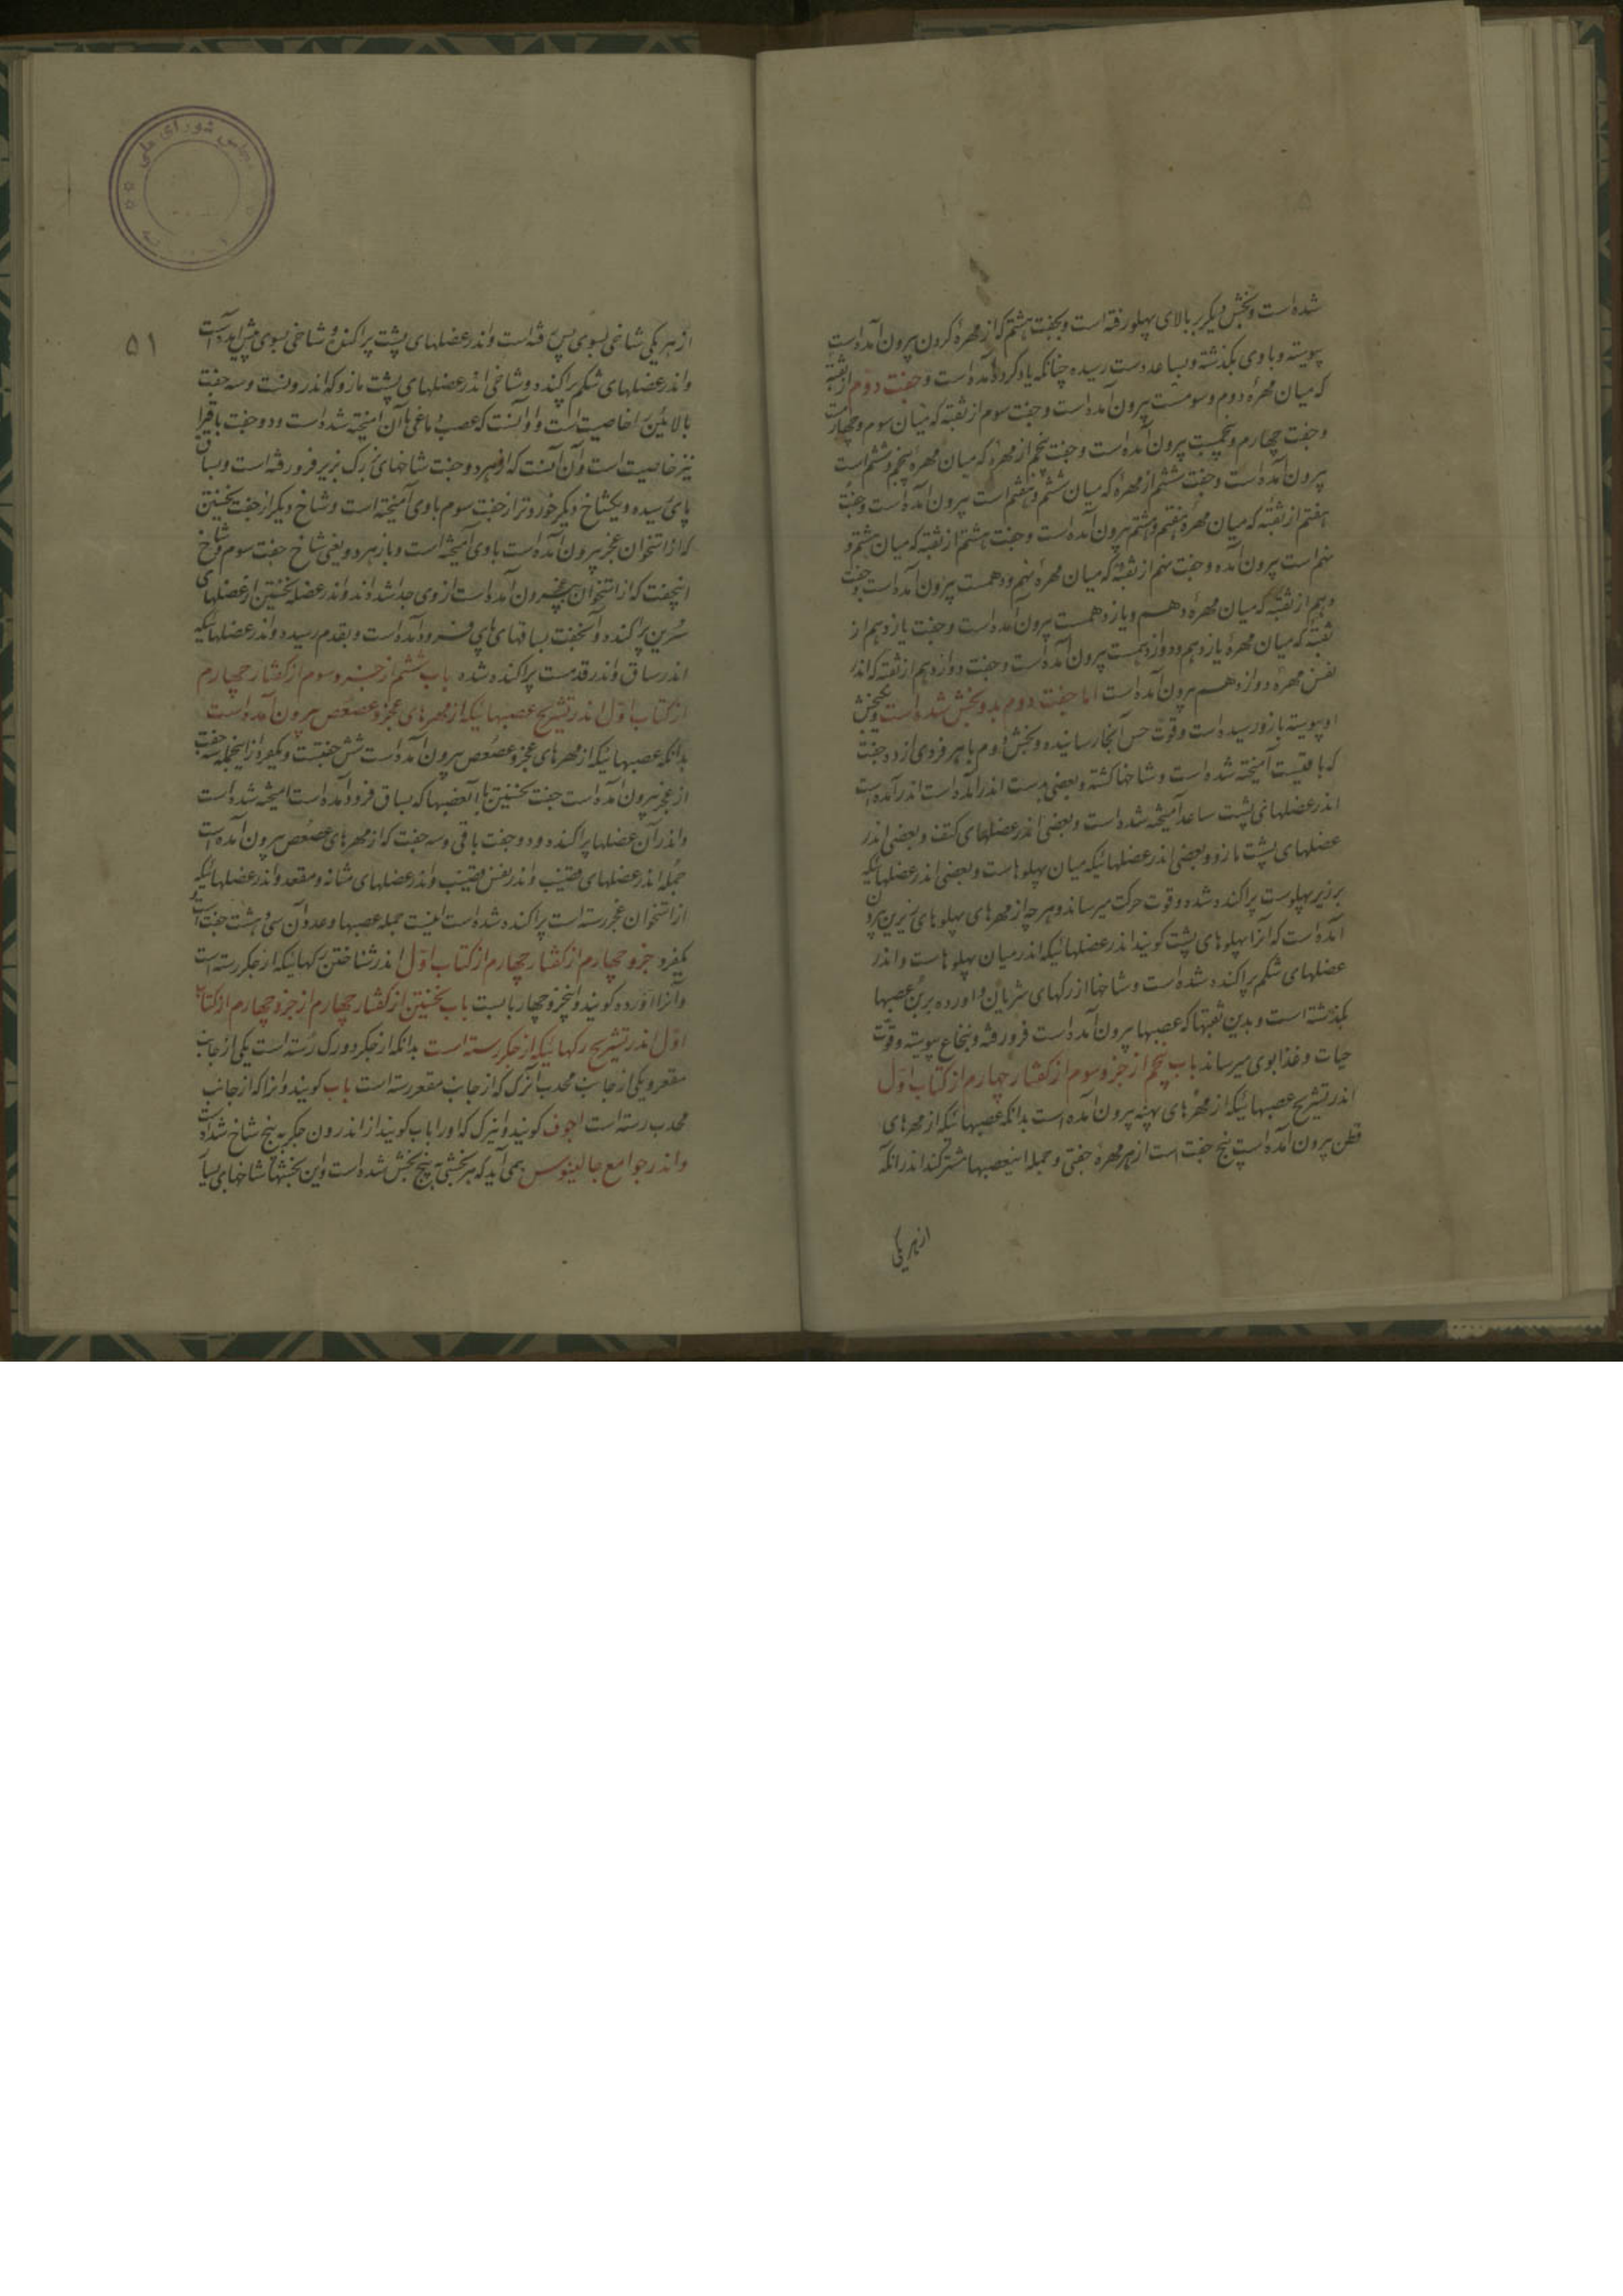 شده است و بخش دیگر بر بالای پهلو رفته است و بجفت هشتم که از مهرهٔ کردن بیرون آمده است
پیوسته و با وی بگذشته و بساعد دست رسیده چنانکه یاد کرده آمده است و جفت دوم از ثقبه
که میان مهرهٔ دوم و سومست بیرون آمده است و جفت سوم از ثقبه که میان سوم و چهارمست
و جفت چهارم و پنجمست بیرون آمده است و جفت پنجم از مهره که میان مهره پنجم و ششم است
بیرون آمده است و جفت ششم از مهره که میان ششم و هفتم است بیرون آمده است و جفت
هفتم از ثقبه که میان مهره هفتم و هشتم بیرون آمده است و جفت هشتم از ثقبه که میان هشتم و
نهم است بیرون آمده و جفت نهم از ثقبه که میان مهرهٔ نهم و دهمست بیرون آمده است و جفت
دهم از ثقبه که میان مهرهٔ دهم و یازدهمست بیرون آمده است و جفت یازدهم از
ثقبه که میان مهرهٔ یازدهم و دوازدهمست بیرون آمده است و جفت دوازدهم از ثقبه که اندر
نفس مهرهٔ دوازدهم بیرون آمده است اما جفت دوم بدو بخش شده است
او پیوسته ببازو رسیده است و قوت حس آنجا رسانیده و بخش دوم با هر فردی از ده جفت
که باقیست آمیخته شده است و شاخها کشته و بعضی بدست اندر آمده است
اندر عضلهای پشت ساعد آمیخته شده است و بعضی اندر عضلهای کتف و بعضی اندر
عضلهای پشت مازو و بعضی اندر عضلهائیکه میان پهلوهاست و بعضی اندر عضلهائیکه
بر زیر پهلوست پراکنده شده و قوت حرکت میرساند و هر چه از مهرهای پهلوهای زیرین بیرون
آمده است که آنرا پهلوهای پشت کویند اندر عضلهائیکه اندر میان پهلوهاست و اندر
عضلهای شکم پراکنده شده است و شاخها از رکهای شریان و اورده برین عصبها
بگذشته است و بدین ثقبها که عصبها بیرون آمده است فرو رفته و بنخاع پیوسته و قوت
حیات و غذا بوی میرساند باب پنجم از جزو سوم از کفتار چهارم از کتاب اول
اندر تشریح عصبهائیکه از مهرهای پهنه بیرون آمده است بدانکه عصبهائیکه از مهرهای
قطن بیرون آمده است پنج جفت است از هر مهرهٔ جفتی و جمله اینعصبها مشترکند اندر آنکه
از هر یکی
۵۱
از هر یکی شاخی بسوی پس رفته است و اندر عضلهای پشت پراکنده و شاخی بسوی پیش آمده است
و اندر عضلهای شکم پراکنده و شاخی اندر عضلهای پشت مازو که اندرونست و سه جفت
بالائین را خاصیت است و آن آنست که عصب دماغی با آن آمیخته شده است و دو جفت باقی را
نیز خاصیت است و آن آنست که از هر دو جفت شاخهای بزرک بزیر فرو رفته است و بساق
پای رسیده و یکشاخ دیکر خوردتر از جفت سوم با وی آمیخته است و شاخ دیکر از جفت نخستین
که از استخوان عجز بیرون آمده است با وی آمیخته است و باز هر دو یعنی شاخ جفت سوم و شاخ
اینجفت که از استخوان عجز بیرون آمده است از وی جدا شده اند و اندر عضله نخستین از عضلهای
سرین پراکنده و آنجفت بساقهای پای فرود آمده است و بقدم رسیده و اندر عضلهائیکه
اندر ساق و اندر قدمست پراکنده شده باب ششم از جزو سوم از کفتار چهارم
از کتاب اول اندر تشریح عصبهائیکه از مهرهای عجز و عصعص بیرون آمده است
بدانکه عصبهائیکه از مهرهای عجز و عصعص بیرون آمده است شش جفتست و یکفرد از اینجمله سه جفت
از عجز بیرون آمده است جفت نخستین با آنعصبها که بساق فرود آمده است آمیخته شده است
و اندر آن عضلها پراکنده و دو جفت باقی و سه جفت که از مهرهای عصعص بیرون آمده است
جمله اندر عضلهای قضیب و اندر نفس قضیب و اندر عضلهای مثانه و مقعد و اندر عضلهائیکه
از استخوان عجز رسته است پراکنده شده است اینست جمله عصبها و عدد آن سی و هشت جفت است
یکفرد جزو چهارم از کفتار چهارم از کتاب اول اندر شناختن رکهائیکه از جکر رسته است
و آنرا اورده کویند و اینجزو چهار بابست باب نخستین از کفتار چهارم از جزو چهارم از کتاب
اول اندر تشریح رکهائیکه از جکر رسته است بدانکه از جکر دو رک رسته است یکی از جانب
مقعر و یکی از جانب محدب آنرک که از جانب مقعر رسته است باب کویند و آنرا که از جانب
محدب رسته است اجوف کویند و اینرک که او را باب کویند از اندرون جکر به پنج شاخ شده است
و اندر جوامع جالینوس همی آید که هر بخشی به پنج بخش شده است و این بخشها شاخهای بسیار